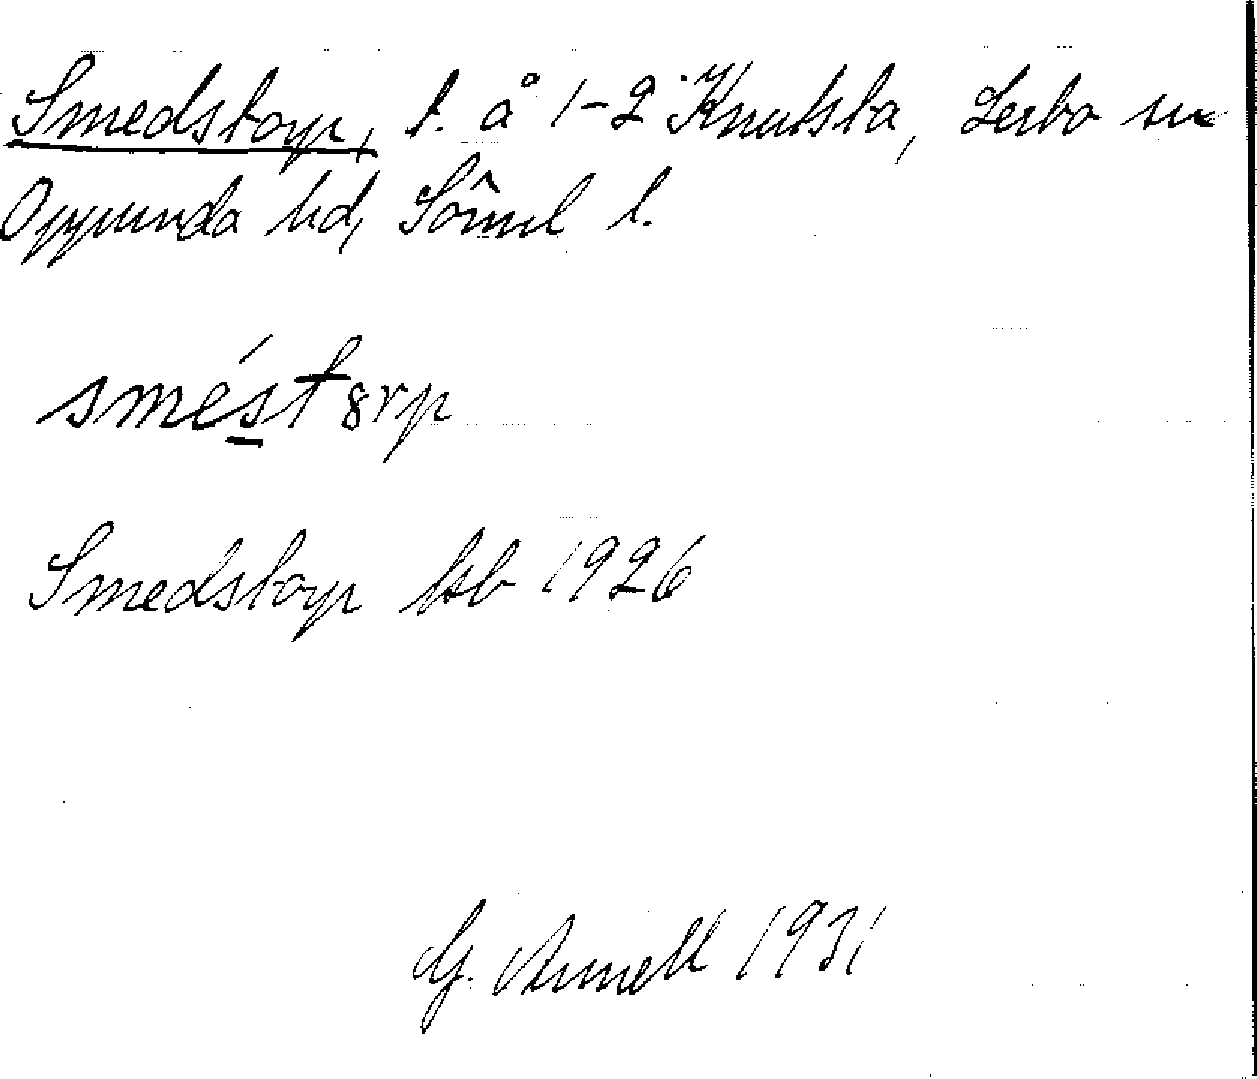 Smedstorp, t. å 1-2 Knutsta, Lerbo sn
Oppunda hd, Söml l.
smés̲t8rp
Smedstorp jsb 1926
G. Arnell 1931